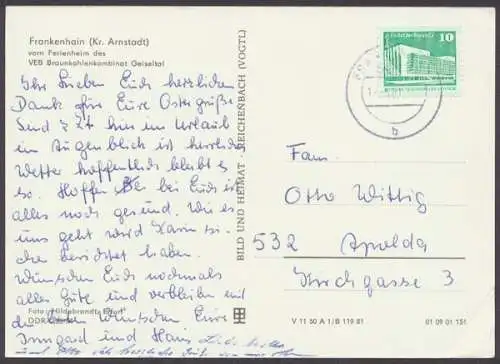 Frankenhain (Kr. Arnstadt)
vom Ferienheim des
VEB Braunkohlenkombinat Geiseltal
Ihr Lieben Euch herzlichen
Dank für Eure Ostergrüße
Sind z Zt hier im Urlaub
im Augenblick ist herrliches
Wetter hoffentlich bleibt es
so. Hoffen bei Euch ist
alles noch gesund. Wie es
uns geht wird Karin si-
cher berichtet haben.
Wünschen Euch nochmals
alles Gute und verbleiben mit
die besten Wünschen Eure
Irmgard und Hans
Foto: Hildebrandt, Erfurt
DDR
BILD UND HEIMAT · REICHENBACH (VOGTL)
10
b
Fam.
Otto Wittig
532 Apolda
Kirchgasse 3
V 11 50 A 1/B 119 81
01 09 01 151